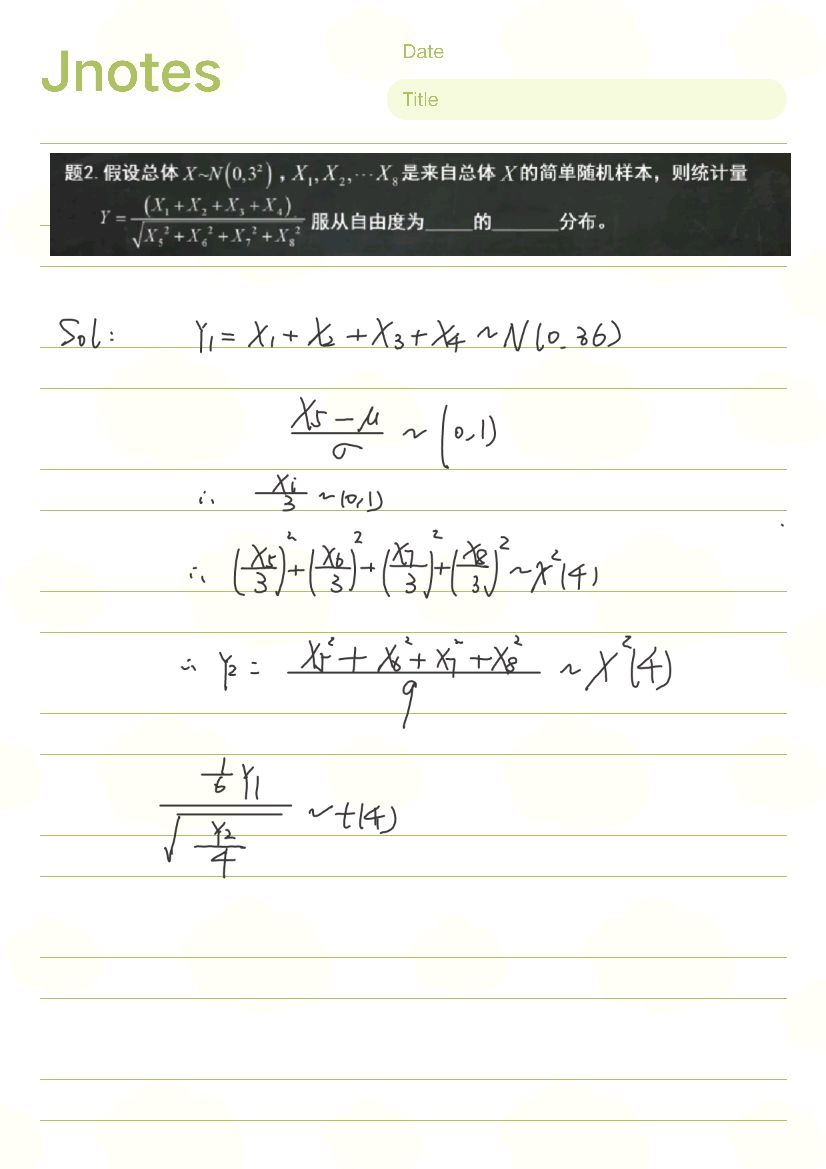 Jnotes
Date
Title
题2. 假设总体 X~N(0,3²)，X₁,X₂,⋯X₈是来自总体 X 的简单随机样本，则统计量
Y = (X₁+X₂+X₃+X₄) / √(X₅²+X₆²+X₇²+X₈²) 服从自由度为_____的_______分布。
Sol: Y₁ = X₁ + X₂ + X₃ + X₄ ~ N(0.36)
(X₅ - μ)/σ ~ (0,1)
∴ Xi/3 ~ (0,1)
∴ (X₅/3)² + (X₆/3)² + (X₇/3)² + (X₈/3)² ~ X²(4)
∴ Y₂ = (X₅² + X₆² + X₇² + X₈²)/9 ~ X²(4)
(1/6 Y₁) / √(Y₂/4) ~ t(4)